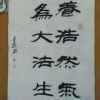 養浩然氣
為大法生